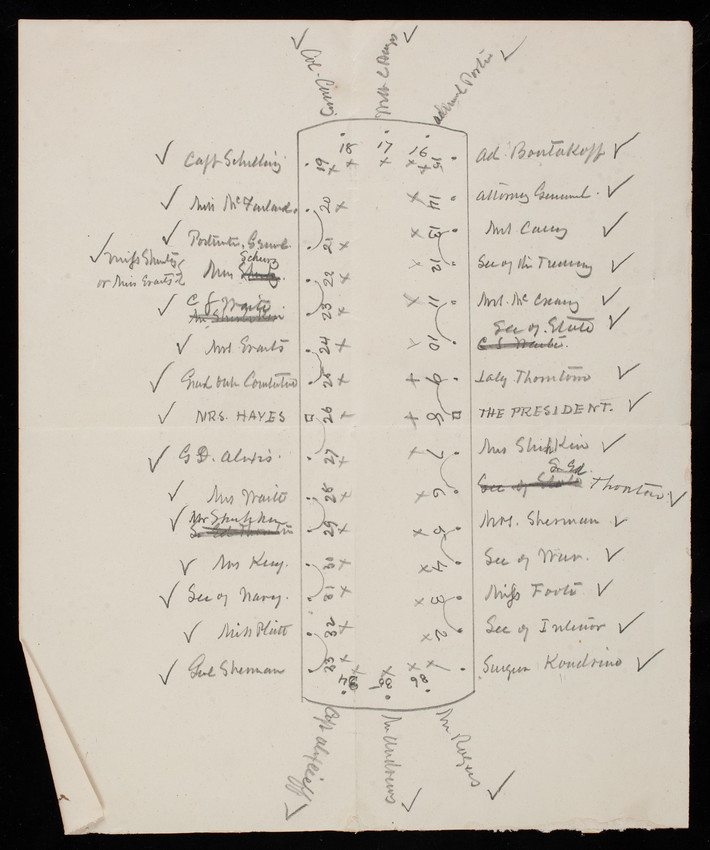 Col. Casey
Admiral Porter
18
17
16
Capt Schilling
19
15
Ad. Boutakoff
Miss McFarland
20
14
Attorney General.
21
13
Mrs Casey
Miss Shertz,
or Miss Evarts
Mrs Schurz
22
12
Sec of the Treasury
C J Waite
23
11
Mrs. McCrary
Sec of State
Mrs Evarts
24
10
C J Waite.
Grand Duke Constantine
25
9
Lady Thornton
MRS. HAYES
26
8
THE PRESIDENT.
G D. Alexis.
27
7
Mrs Shishkin
Mrs Waite
28
6
Sec of State
Sir Ed. Thornton
Mr Shishkin
29
5
Mrs. Sherman
Mrs Key.
30
4
Sec of War.
Sec of Navy.
31
3
Miss Foote
Miss Platt
32
2
Sec of Interior
Genl Sherman
33
1
Surgeon Koudrine
34
35
36
Capt Alexeieff
Mr Andrews
Mr Rogers